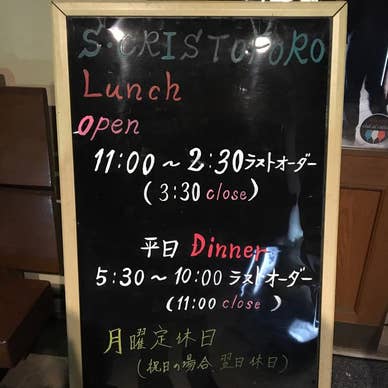 S・CRISTOFORO
Lunch
open
11:00～2:30ラストオーダー
(3:30 close)
平日 Dinner
5:30～10:00 ラストオーダー
(11:00 close)
月曜定休日
(祝日の場合、翌日休日)